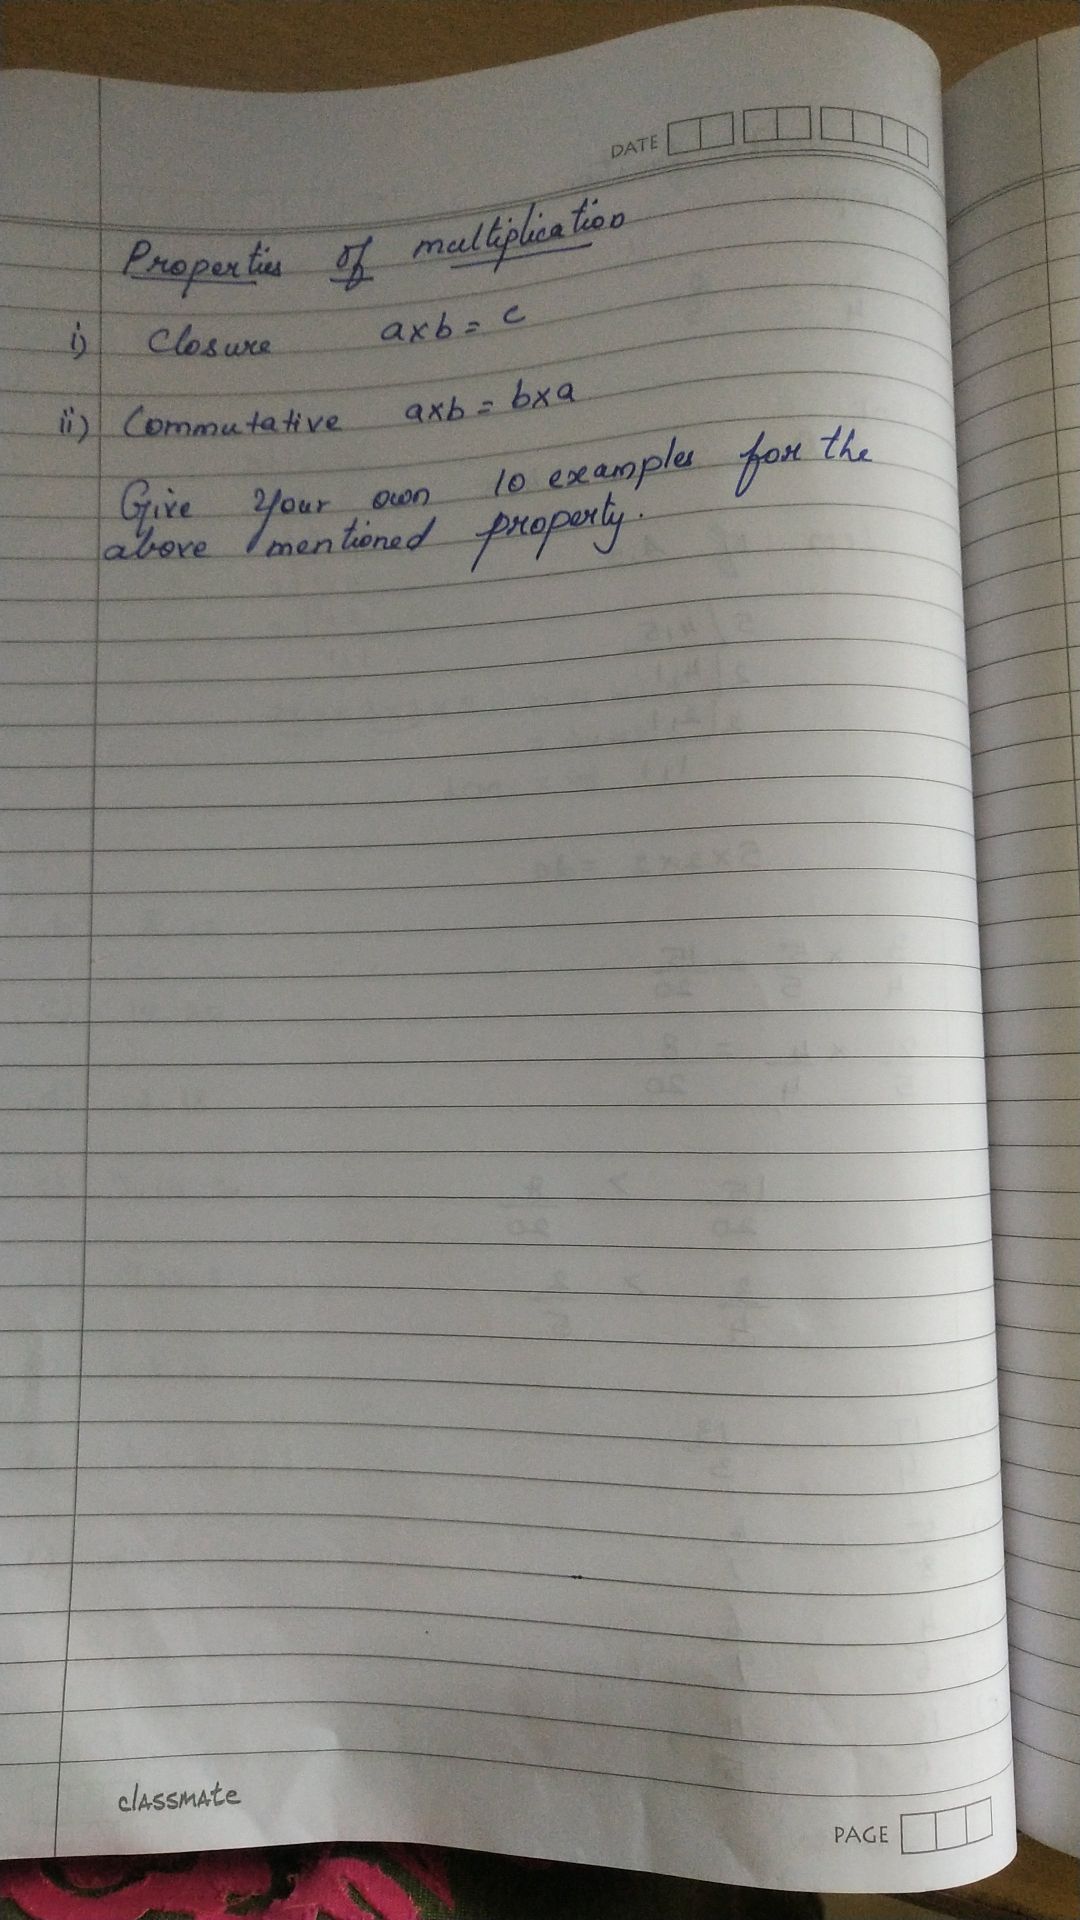 DATE
Properties of multiplication
i) Closure a×b = c
ii) Commutative a×b = b×a
Give Your own 10 examples for the
above mentioned property.
classmate
PAGE